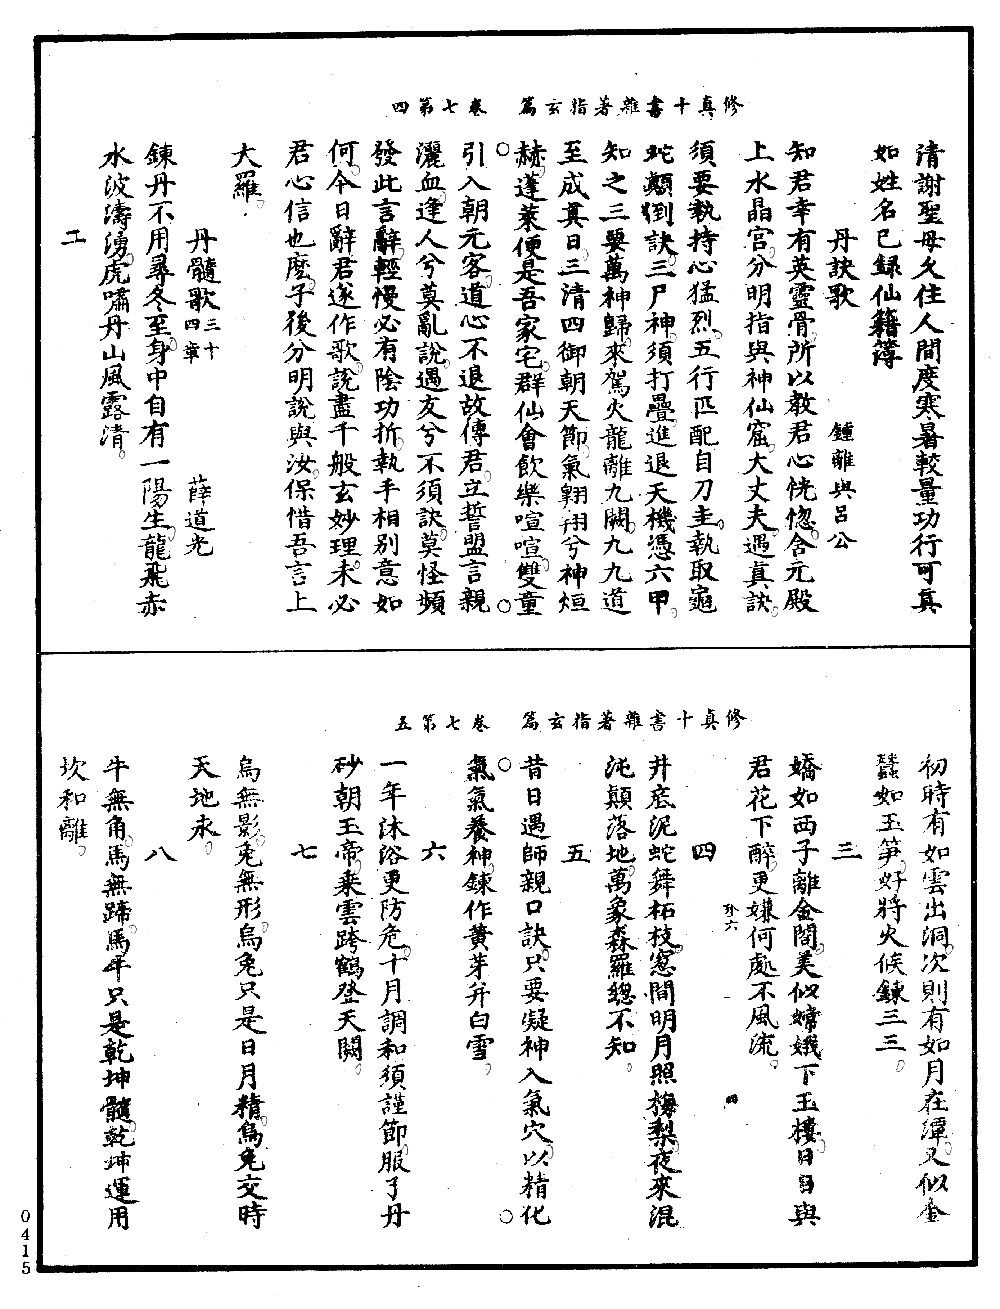 修真十書雜著指玄篇　卷七第四
清謝聖母久住人間度寒暑較量功行可真
如姓名已録仙籍簿
丹訣歌　鍾離與呂公
知君幸有英靈骨所以教君心恍惚含元殿
上水晶宮分明指與神仙窟大丈夫遇真訣
須要執持心猛烈五行匹配自刀圭執取龜
蛇顛倒訣三尸神須打疊進退天機憑六甲
知之三要萬神歸來駕火龍離九闕九九道
至成真日三清四御朝天節氣翱翔兮神烜
赫蓬萊便是吾家宅群仙會飲樂喧喧雙童
引入朝元客道心不退故傳君立誓盟言親
灑血逢人兮莫亂說遇友兮不須訣莫怪頻
發此言辭輕慢必有陰功折執手相別意如
何今日辭君遂作歌說盡千般玄妙理未必
君心信也麼子後分明說與汝保惜吾言上
大羅
丹髓歌三十四章　薛道光
鍊丹不用尋冬至身中自有一陽生龍飛赤
水波濤湧虎嘯丹山風露清
二
修真十書雜著指玄篇　卷七第五
初時有如雲出洞次則有如月在潭又似金
蠶如玉笋好將火候鍊三三
三
嬌如西子離金閣美似嫦娥下玉樓日日與
君花下醉更嫌何處不風流
四
井底泥蛇舞柘枝窓間明月照梅梨夜來混
沌顛落地萬象森羅總不知
五
昔日遇師親口訣只要凝神入氣穴以精化
氣氣養神鍊作黃芽并白雪
六
一年沐浴更防危十月調和須謹節服了丹
砂朝玉帝乘雲跨鶴登天闕
七
烏無影兔無形烏兔只是日月精烏兔交時
天地永
八
牛無角馬無蹄馬牛只是乾坤髓乾坤運用
坎和離
0415